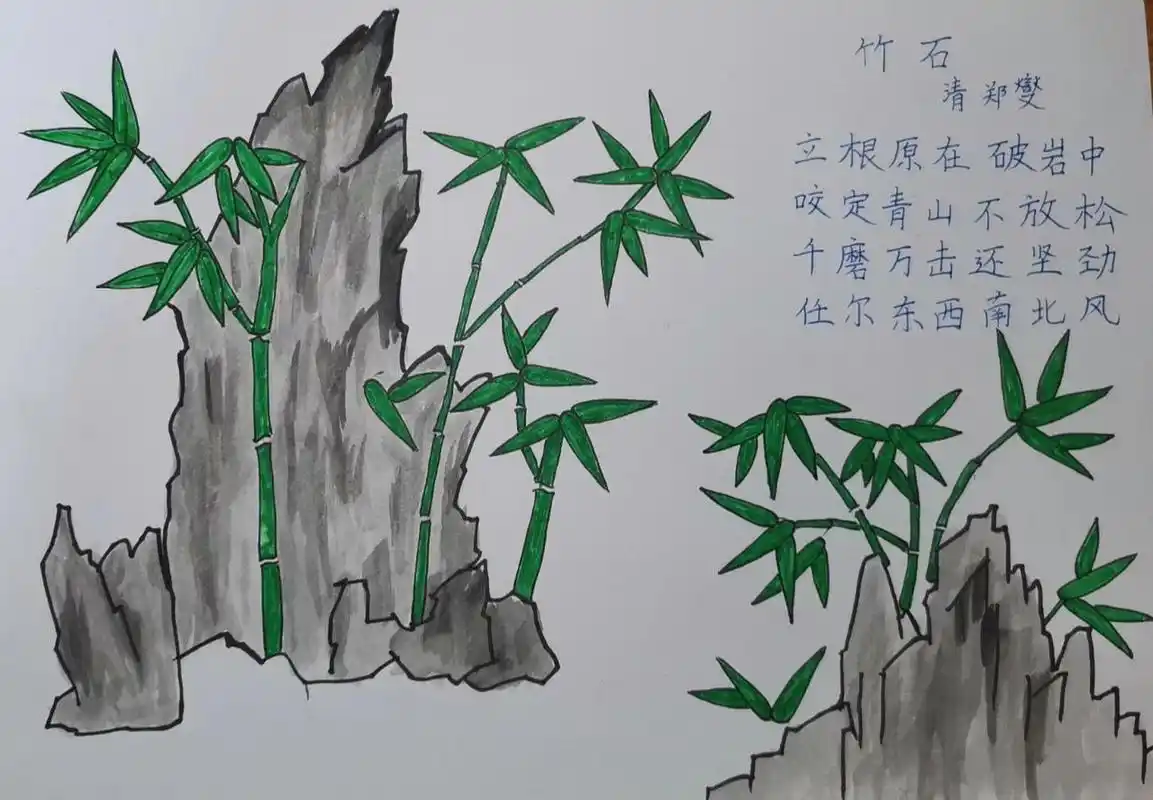 竹石
清 郑燮
立根原在破岩中
咬定青山不放松
千磨万击还坚劲
任尔东西南北风